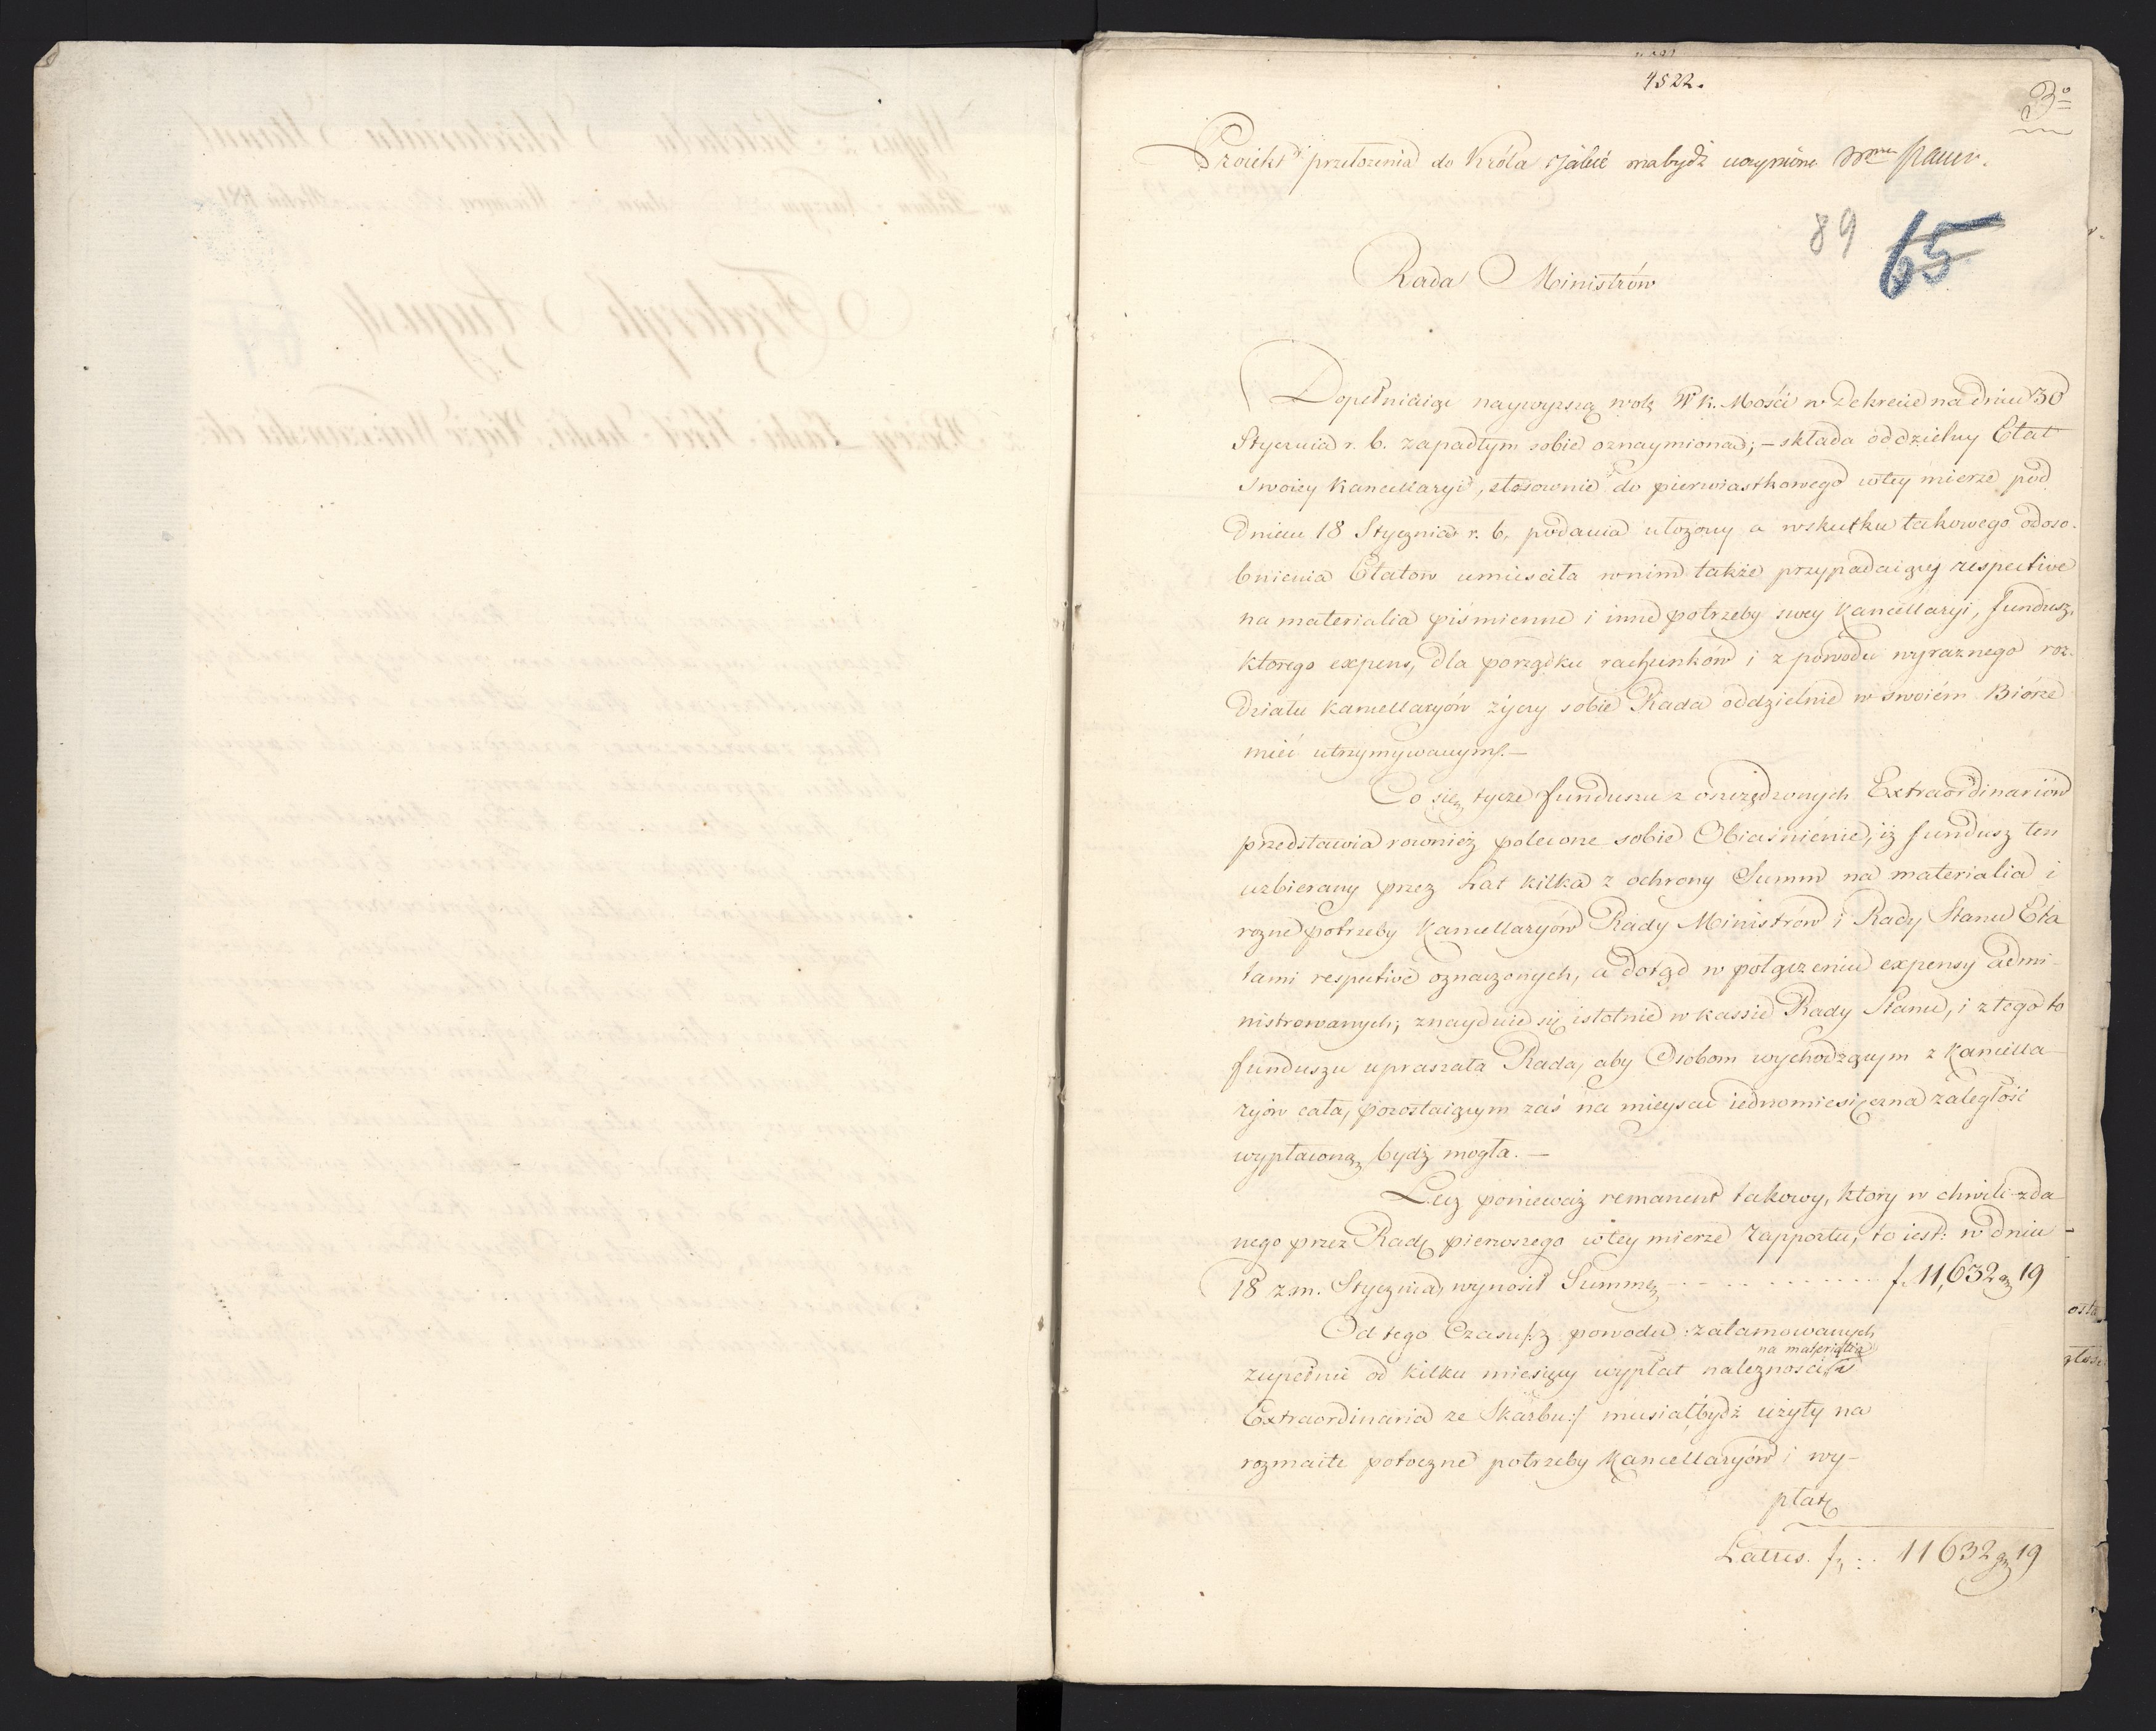 4522.
3º
Proiekt przełożenia do Króla jakie ma bydź uczynione
89 65
Rada Ministrów
Dopełniaiąc naywyższą wolę W. K. Mości w Dekrecie na dniu 30
Stycznia r. b. zapadłym sobie oznaymioną; – składa oddzielny Etat
Swoiey Kancellaryi, stosownie do pierwiastkowego w tey mierze pod
Dniem 18 Stycznia r. b. podania ułożony a wskutku takowego odoso-
bnienia Etatow umieściła w nim także przypadaiący respective
na materialia piśmienne i inne potrzeby swey Kancellaryi, fundusz,
ktorego expens, dla porządku rachunków i z powodu wyraznego roz-
działu Kancellaryów życzy sobie Rada oddzielnie w swoiém Biórze
mieć utrzymywanym. –
Co się tycze funduszu z oszczędzonych Extraordinariów
przedstawia rownież polecone sobie Obiaśnienie, iż fundusz ten
uzbierany przez Lat kilka z ochrony Summ na materialia i
rozne potrzeby Kancellaryów Rady Ministrów i Rady Stanu Eta
tami respective oznaczonych, a dotąd w połączeniu expensy admi-
nistrowanych; znayduie się istotnie w kassie Rady Stanu, i z tego to
funduszu upraszała Rada, aby Osobom wychodzącym z Kancella-
ryów cała, pozostaiącym zaś na mieyscu iednomiesięczna zaległość
wypłaconą bydź mogła. –
Lecz ponieważ remanent takowy, ktory w chwili zda
nego przez Radę pierwszego w tey mierze Rapportu, to iest: w dniu
18 z. m. Stycznia, wynosił Summę - - - - - - - f. 11,632 gr 19
Od tego Czasu /: z powodu załamowanych
zupełnie od kilku miesięcy wypłat należności na materialia i
Extraordinaria ze Skarbu :/ musiał bydź użyty na
rozmaite potoczne potrzeby Kancellaryów i wy-
płatę
Latus. f. : . 11632 gr 19